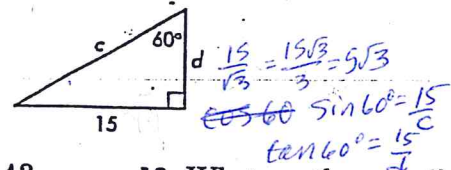 c
60°
d
15
15/√3 = 15√3/3 = 5√3
cos 60 sin 60° = 15/c
tan 60° = 15/d